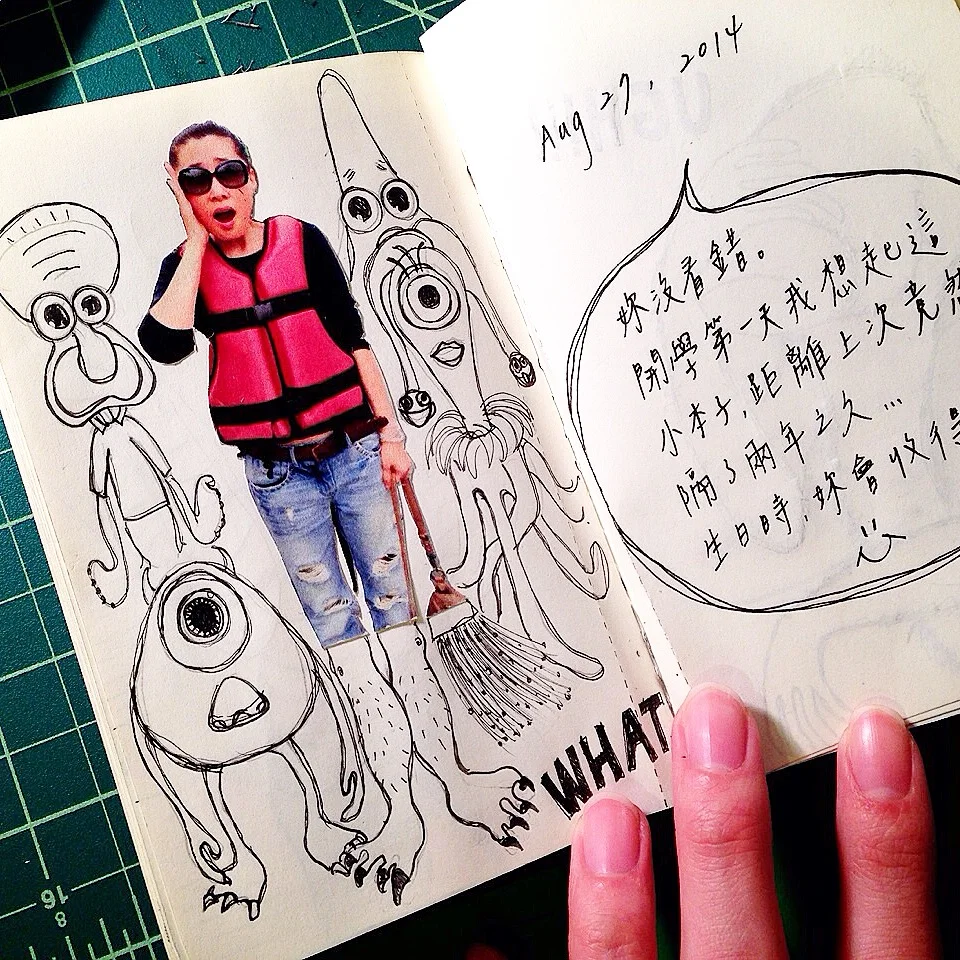 Aug 27, 2014
妳沒看錯。
開學第一天我想起這
小本子,距離上次竟然
隔了兩年之久...
生日時,妳會收得
WHAT
16
8